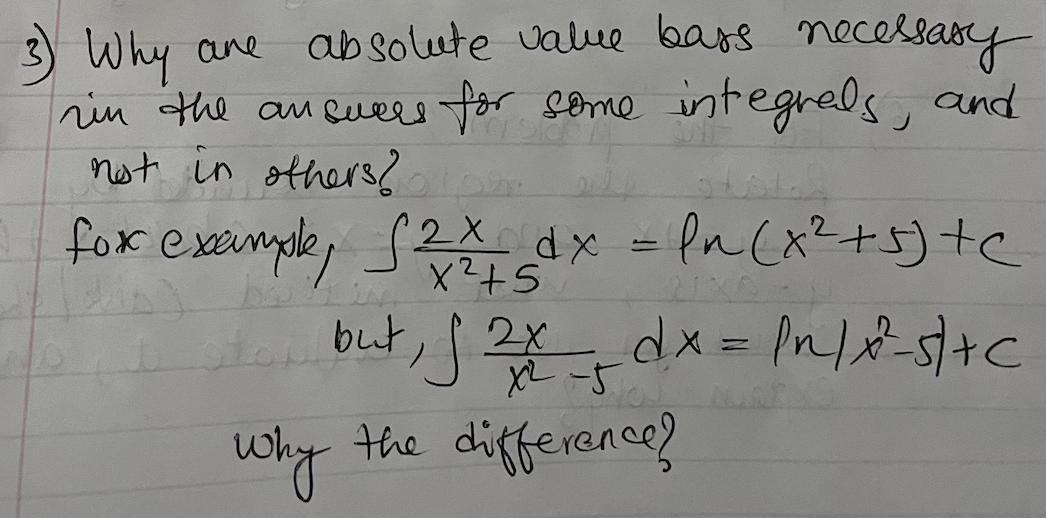 3) Why are absolute value bars necessary
in the answers for some integrals, and
not in others?
for example, ∫ 2x/(x²+5) dx = ln(x²+5)+c
but, ∫ 2x/(x²-5) dx = ln|x²-5|+c
Why the difference?